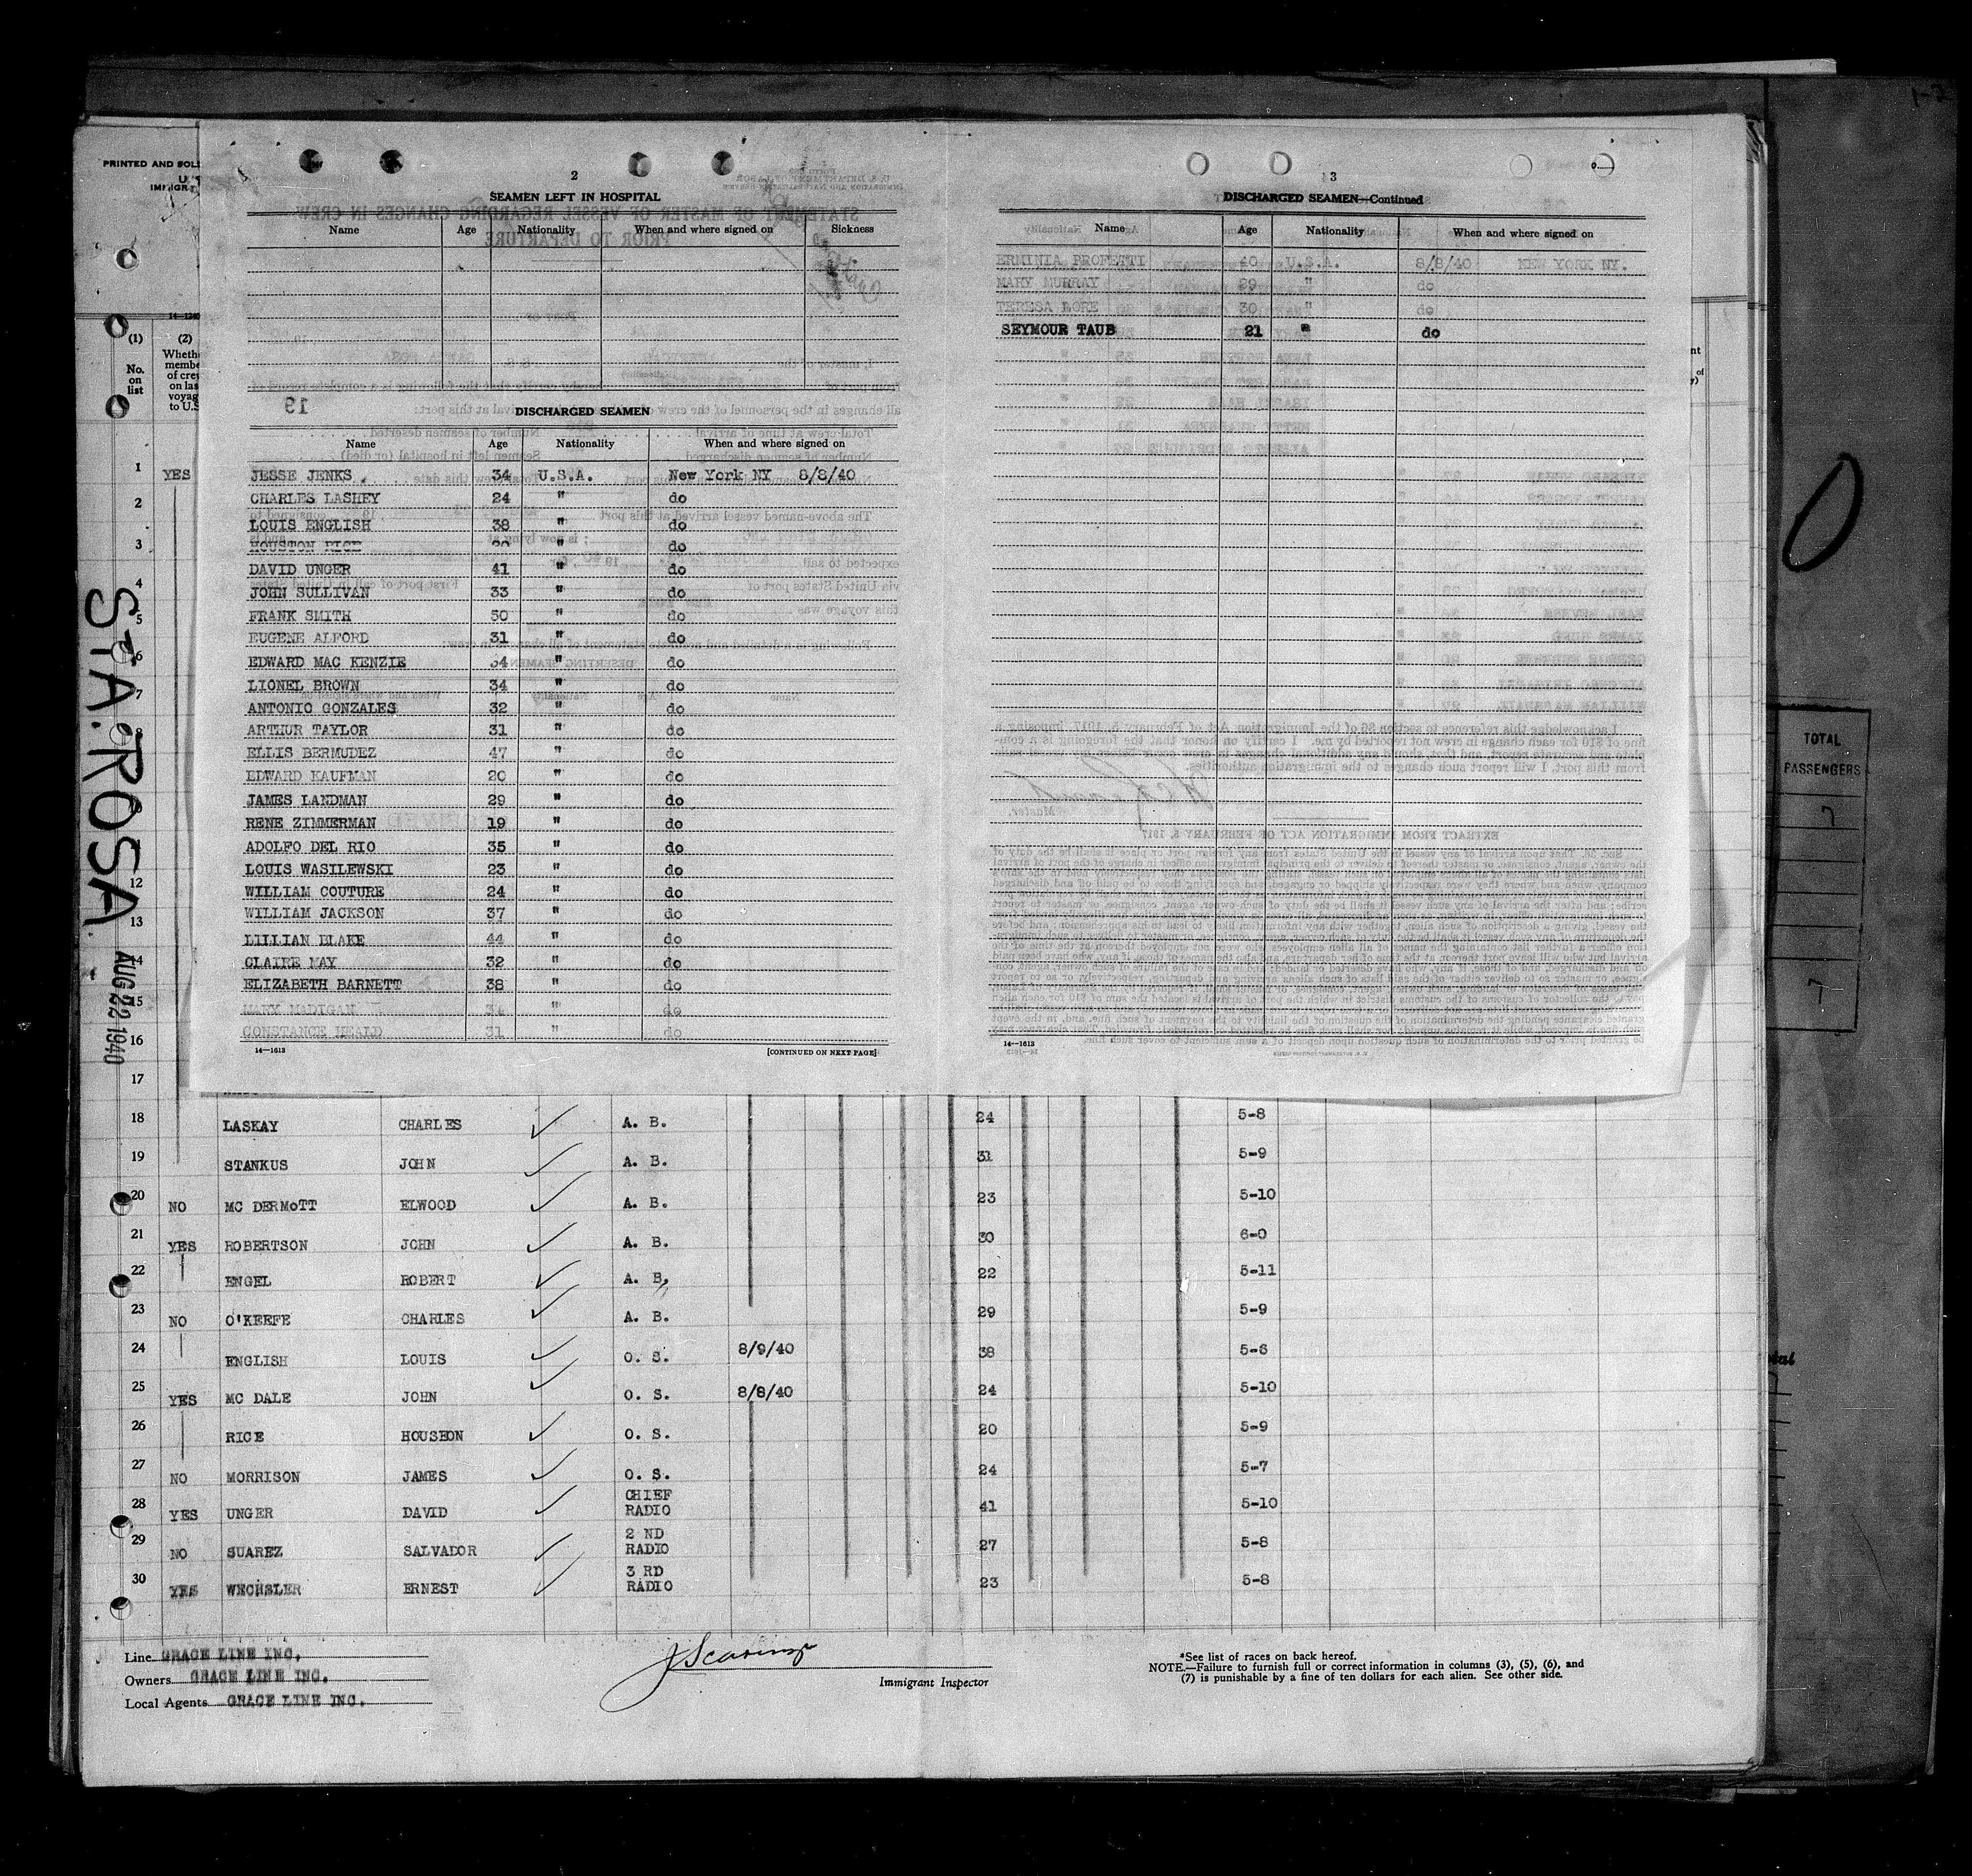 1-2
PRINTED AND SOL
U
IMMIGR
2
SEAMEN LEFT IN HOSPITAL
Name Age Nationality When and where signed on Sickness
DISCHARGED SEAMEN
Name Age Nationality When and where signed on
JESSE JENKS 34 U.S.A. New York NY 8/8/40
CHARLES LASHEY 24 " do
LOUIS ENGLISH 38 " do
HOUSTON RICE 20 " do
DAVID UNGER 41 " do
JOHN SULLIVAN 33 " do
FRANK SMITH 50 " do
EUGENE ALFORD 31 " do
EDWARD MAC KENZIE 34 " do
LIONEL BROWN 34 " do
ANTONIO GONZALES 32 " do
ARTHUR TAYLOR 31 " do
ELLIS BERMUDEZ 47 " do
EDWARD KAUFMAN 20 " do
JAMES LANDMAN 29 " do
RENE ZIMMERMAN 19 " do
ADOLFO DEL RIO 35 " do
LOUIS WASILEWSKI 23 " do
WILLIAM COUTURE 24 " do
WILLIAM JACKSON 37 " do
LILLIAN BLAKE 44 " do
CLAIRE MAY 32 " do
ELIZABETH BARNETT 38 " do
MARY MADIGAN 34 " do
CONSTANCE HEALD 31 " do
14—1613 [CONTINUED ON NEXT PAGE]
3
DISCHARGED SEAMEN—Continued
Name Age Nationality When and where signed on
ERMINIA PROFETTI 40 U.S.A. 8/8/40 NEW YORK NY.
MARY MURRAY 29 " do
TERESA LORE 30 " do
SEYMOUR TAUB 21 " do
14—1613
(1) (2)
No. on list
Wheth
membe
of crew
on las
voyag
to U.S
STA. ROSA
AUG 22 1940
1 YES
2
3
4
5
6
7
8
10
12
13
14
15
16
17
18 LASKAY CHARLES A. B. 24 5-8
19 STANKUS JOHN A. B. 31 5-9
20 NO MC DERMoTT ELWOOD A. B. 23 5-10
21 YES ROBERTSON JOHN A. B. 30 6-0
22 ENGEL ROBERT A. B, 22 5-11
23 NO O'KEEFE CHARLES A. B. 29 5-9
24 ENGLISH LOUIS O. S. 8/9/40 38 5-6
25 YES MC DALE JOHN O. S. 8/8/40 24 5-10
26 RICE HOUSEON O. S. 20 5-9
27 NO MORRISON JAMES O. S. 24 5-7
28 YES UNGER DAVID CHIEF RADIO 41 5-10
29 NO SUAREZ SALVADOR 2 ND RADIO 27 5-8
30 YES WECHSLER ERNEST 3 RD RADIO 23 5-8
Line GRACE LINE INC.
Owners GRACE LINE INC.
Local Agents GRACE LINE INC.
Immigrant Inspector
*See list of races on back hereof.
NOTE.—Failure to furnish full or correct information in columns (3), (5), (6), and
(7) is punishable by a fine of ten dollars for each alien. See other side.
0
TOTAL
PASSENGERS
7
7